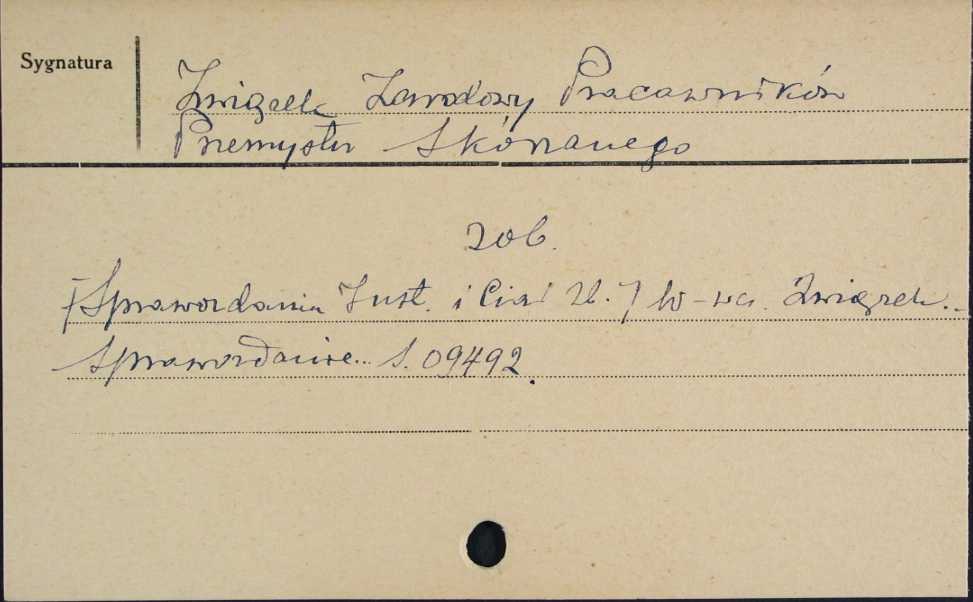 Sygnatura
Związek Zawodowy Pracowników
Przemysłu Skórzanego
zob.
[Sprawozdania Inst. i Ciał Zb.] W-wa. Związek..
Sprawozdanie... S. 09492.